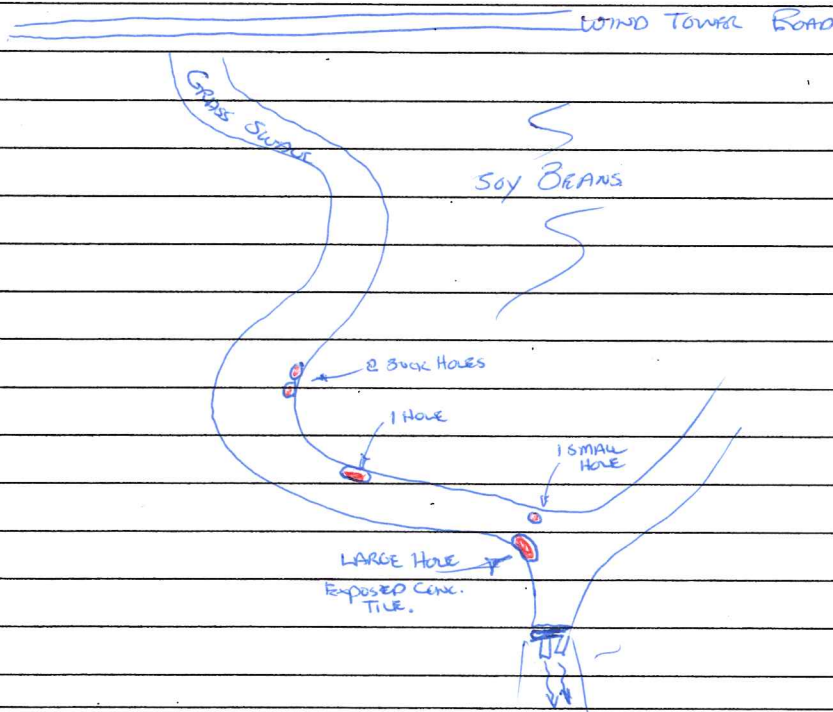 WIND TOWER ROAD
GRASS SWALE
SOY BEANS
2 SUCK HOLES
1 HOLE
1 SMALL
HOLE
LARGE HOLE
EXPOSED CONC.
TILE.